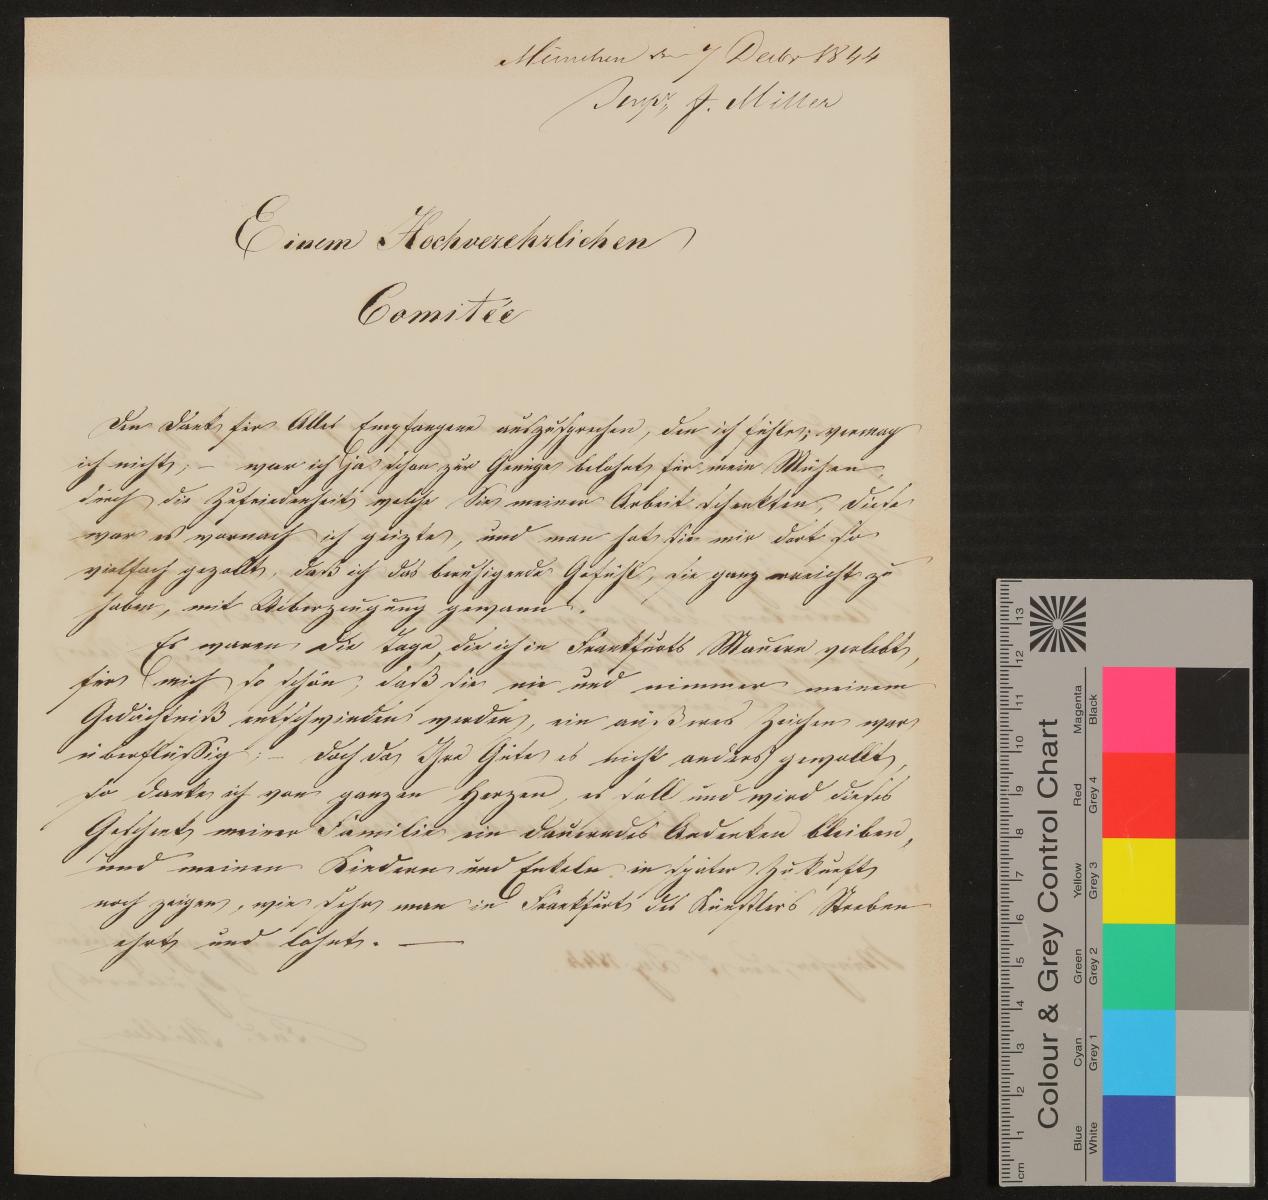 München den 7 Decbr 1844
Insp. F. Miller
Einem Hochverehrlichen
Comitée
Den Dank für Alles Empfangene auszusprechen, den ich fühle, vermag
ich nicht; – war ich ja schon zur Genüge belohnt für mein Mühen
durch die Zufriedenheit welche Sie meiner Arbeit schenkten, diese
war es wornach ich geizte, und man hat sie mir dort so
vielfach gezollt, daß ich das beruhigende Gefühl, sie ganz erreicht zu
haben, mit Ueberzeugung gewann.
Es waren die Tage, die ich in Frankfurts Mauern verlebt,
für mich so schön, daß sie nie und nimmer meinem
Gedächtniß entschwinden werden, ein äußeres Zeichen war
überflüssig; – doch da Ihre Güte es nicht anders gewollt,
so danke ich von ganzen Herzen, es soll und wird dieses
Geschenk meiner Familie ein dauerndes Andenken bleiben,
und meinen Kindern und Enkeln in später Zukunft
noch zeigen, wie sehr man in Frankfurt des Künstlers Streben
ehrt und lohnt. —
Colour & Grey Control Chart
Blue Cyan Green Yellow Red Magenta
White Grey 1 Grey 2 Grey 3 Grey 4 Black
cm 1 2 3 4 5 6 7 8 9 10 11 12 13